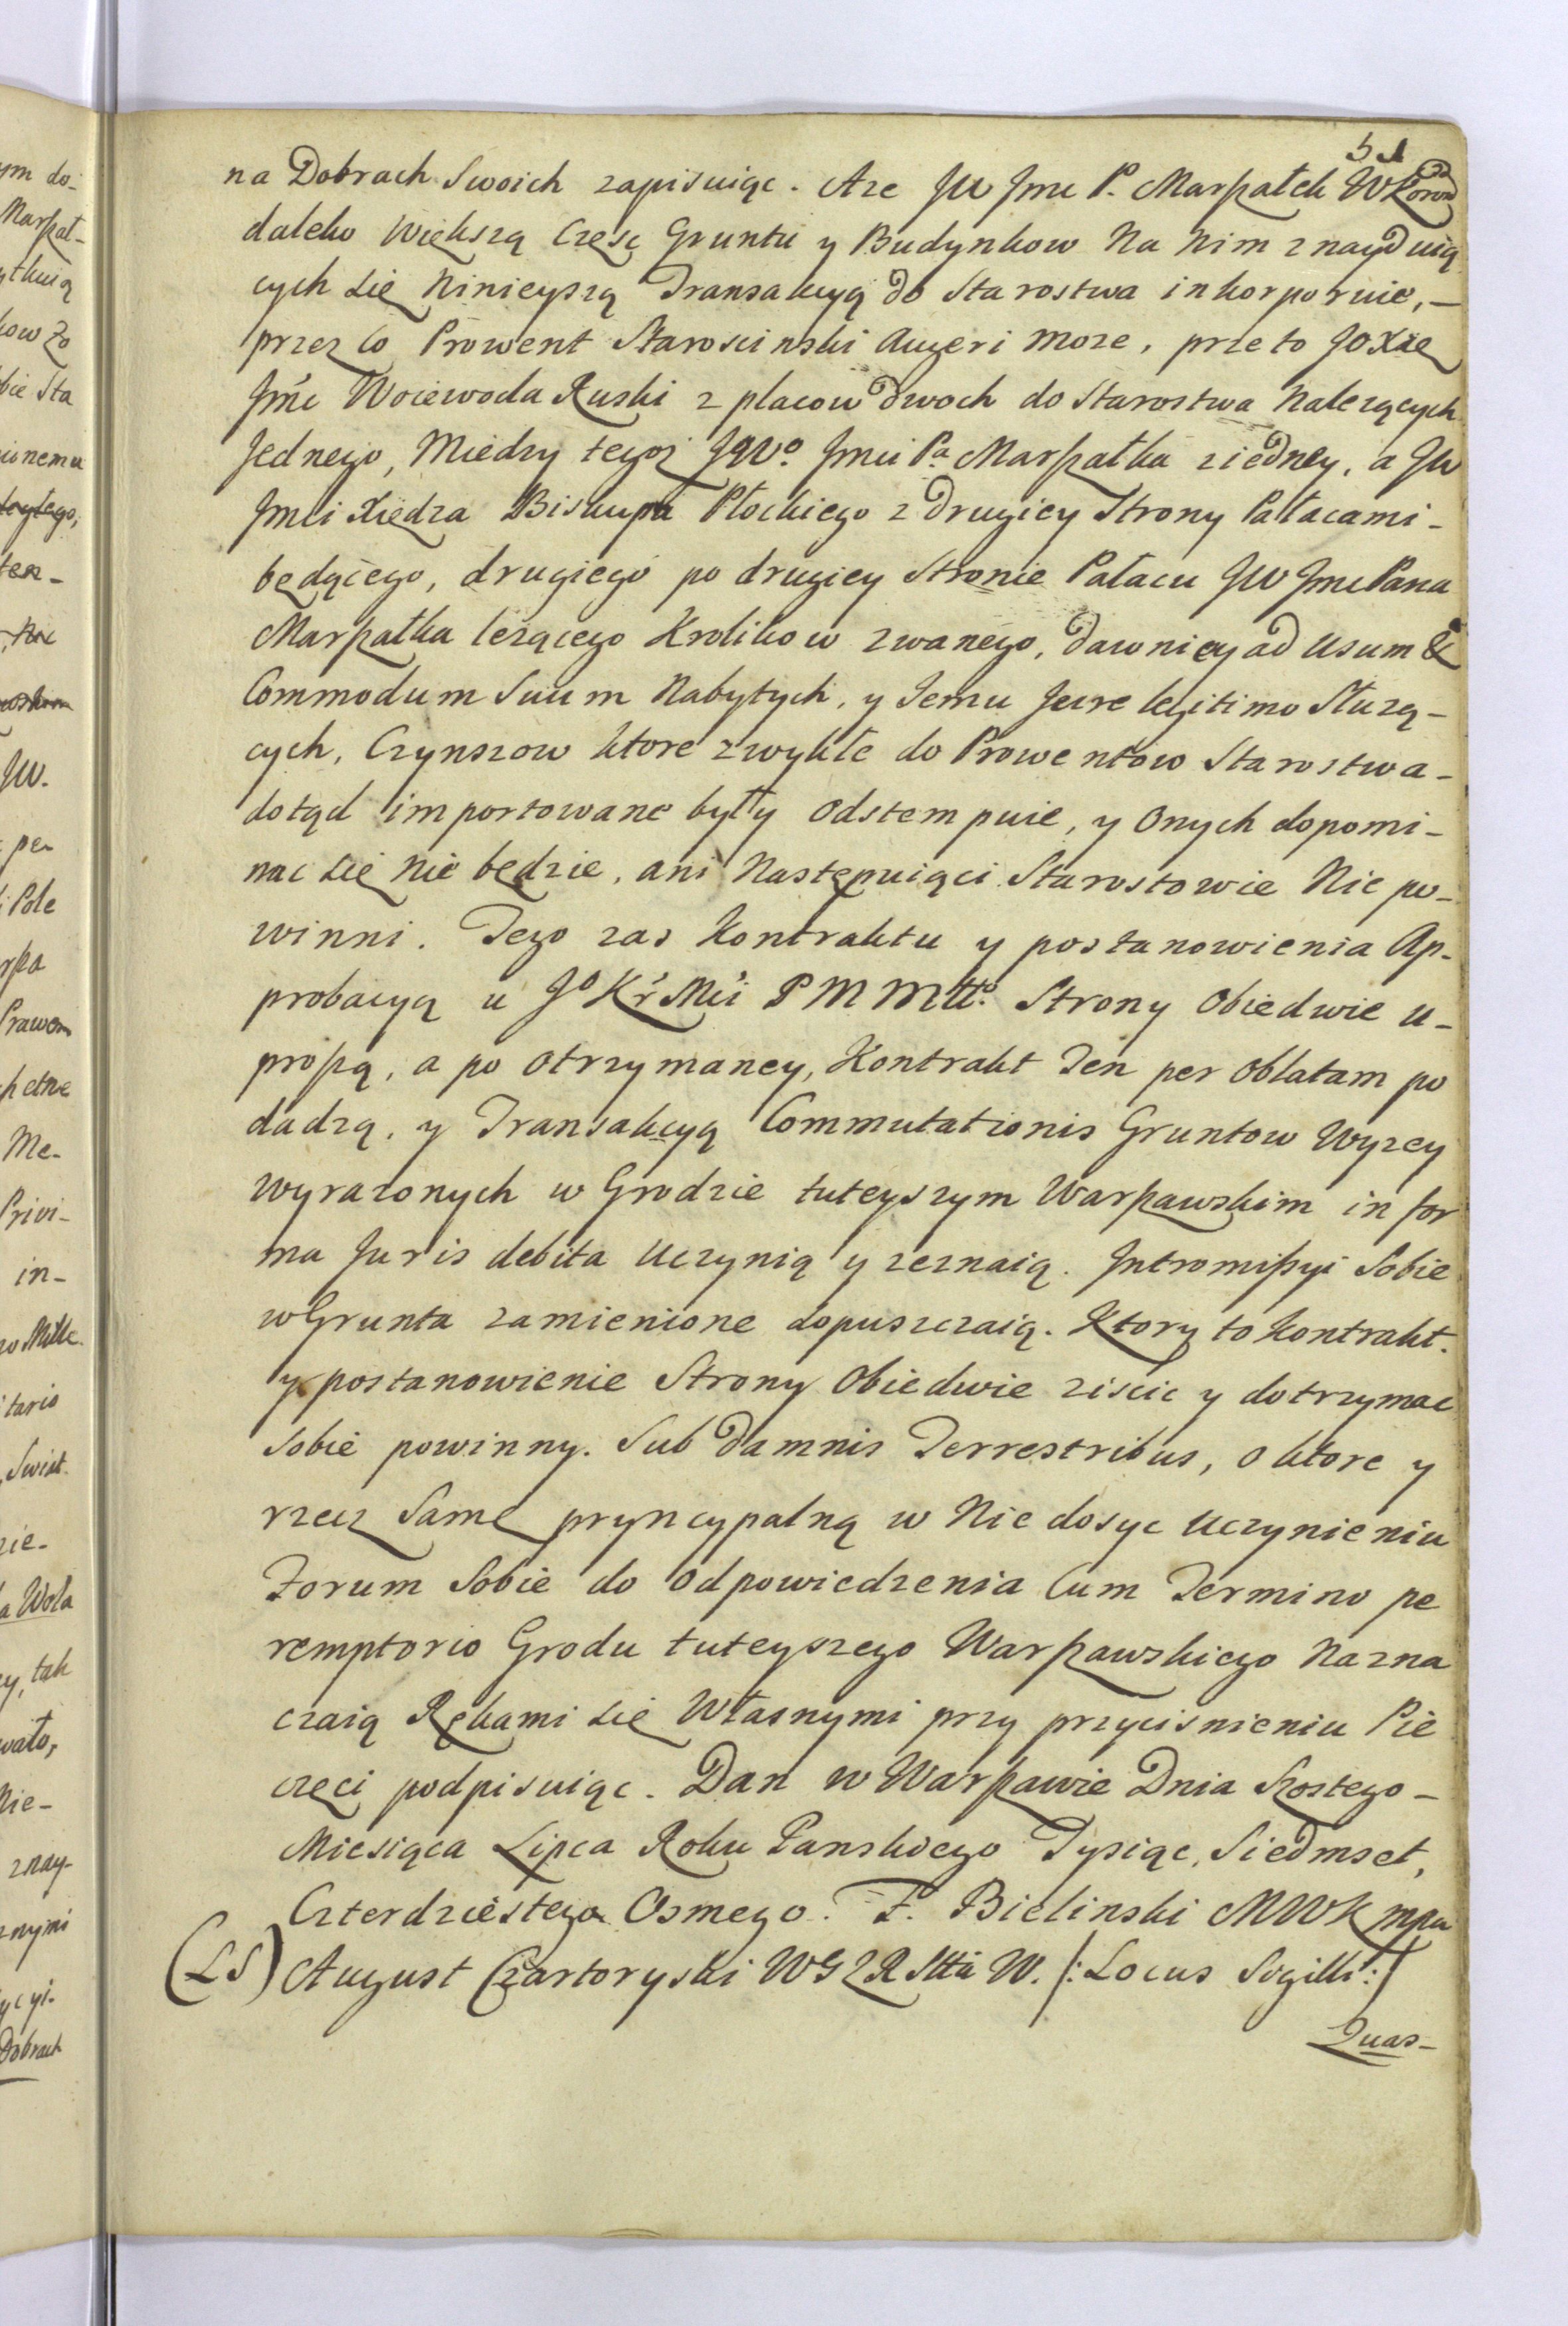 51
na Dobrach Swoich zapisuiąc. Aze JW Jmc P. Marszałek WKoron
daleko większą Częsc Gruntu y Budynkow Na Nim znayduią
cych się Ninieyszą Transakcyą do Starostwa inkorporuie, —
przez co Prowent Starościnski Augeri moze, przeto JOXze
Jmć Woiewoda Ruski z placow dwoch do Starostwa Nalezących
Jednego, Miedzy tegoż JWo. Jmci Pa Marszałka ziedney, a JW
Jmci Xiędza Biskupa Płockiego z drugiey Strony Pałacami -
będącego, drugiego po drugiey Stronie Pałacu JW Jmc Pana
Marszałka lezącego Krolikow zwanego, dawniey ad Usum &
Commodum Suum Nabytych, y Jemu Jure legitimo Słuzą-
cych, Czynszow ktore zwykłe do Prowentow Starostwa -
dotąd importowane były odstempuie, y Onych dopomi-
nac się nie będzie, ani Następuiąci Starostowie Nie po-
winni. Tego zas Kontraktu y postanowienia Ap-
probacyą u Jo Kr Mći P M Mgo Strony Obiedwie u-
proszą, a po otrzymaney, Kontrakt Ten per Oblatam po
dadzą, y Transakcyą Commutationis Gruntow Wyzey
wyrazonych w Grodzie tuteyszym Warszawskim in for
ma Juris debita Uczynią y zeznaią. Intromissyi Sobie
w Grunta zamienione dopuszczaią. Ktory to Kontrakt.
y postanowienie Strony Obiedwie ziscic y dotrzymac
sobie powinny. Sub Damnis Terrestribus, o ktore y
rzecz Samę pryncypalną w Nie dosyc Uczynieniu
Forum Sobie do Odpowiedzenia Cum Termino pe
remptorio Grodu tuteyszego Warszawskiego Nazna
czaią Rękami się Własnymi przy przycisnieniu Pie
częci podpisuiąc. Dan w Warszawie Dnia Szostego -
Miesiąca Lipca Roku Panskiego Tysiąc, Siedmset,
Czterdziestego Osmego. F. Bielinski MWK mpa
(LS) August Czartoryski WGZR Stta W. /: Locus Sigilli :/
Quas-